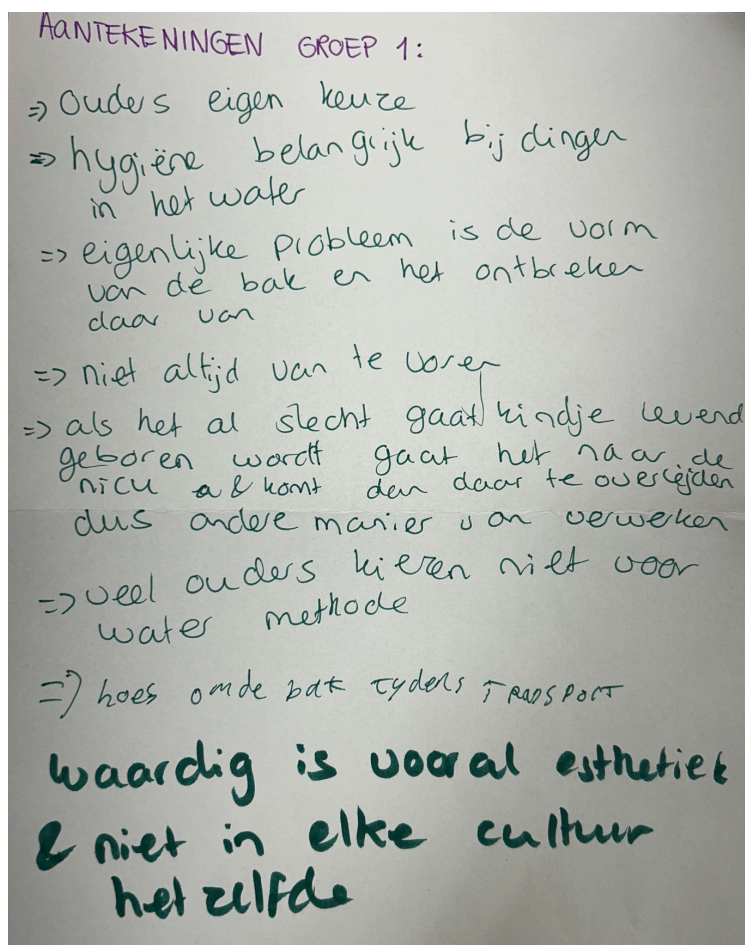 AANTEKENINGEN GROEP 1:
=> ouders eigen keuze
=> hygiëne belangrijk bij dingen
in het water
=> eigenlijke probleem is de vorm
van de bak en het ontbreken
daar van
=> niet altijd van te voren
=> als het al slecht gaat kindje levend
geboren wordt gaat het naar de
nicu & komt den daar te overleijden
dus andere manier van verwerken
=> veel ouders kiezen niet voor
water methode
=> hoes omde bak tyders TRANSPORT
waardig is vooral esthetiek
& niet in elke cultuur
het zelfde